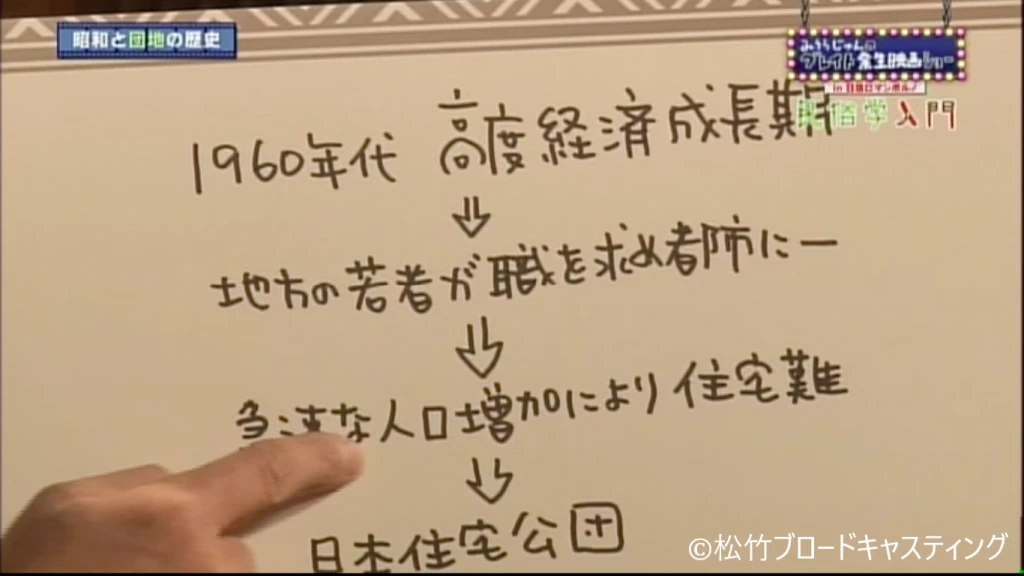 昭和と団地の歴史
みうらじゅんの
グレイト余生映画ショー
in 日活ロマンポルノ
民俗学入門
1960年代 高度経済成長期
⇓
地方の若者が職を求め者師に一
⇓
急速な人口増加により住宅難
⇓
日本住宅公団
©松竹ブロードキャスティング